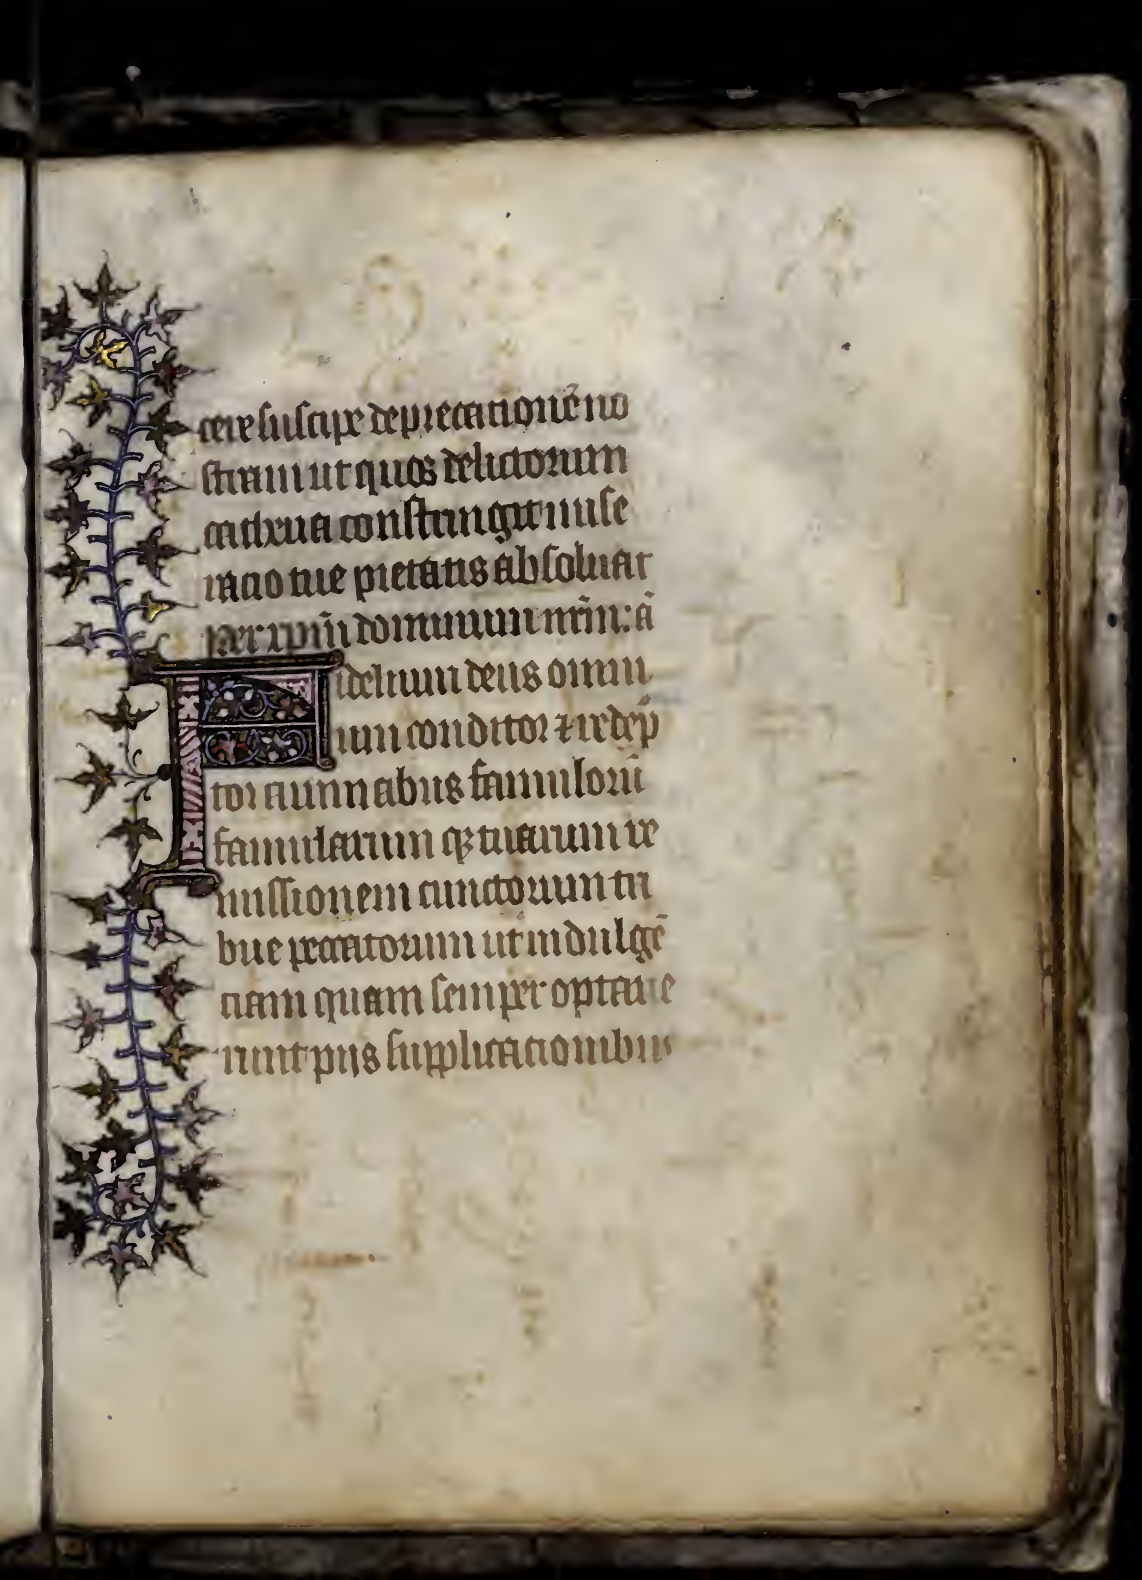 cere suscipe deprecationē no
stram ut quos delictorum
cathena constringit mise
racio tue pietatis absoluat
per xpm̄ dominum nr̄m: ā
Fidelium deus omni
um conditor ⁊ redēp
tor animabus famulorū
famularum qꝫ tuarum re
missionem cunctorum tri
bue peccatorum ut indulgē
ciam quam semper optaue
runt piis supplicationibus